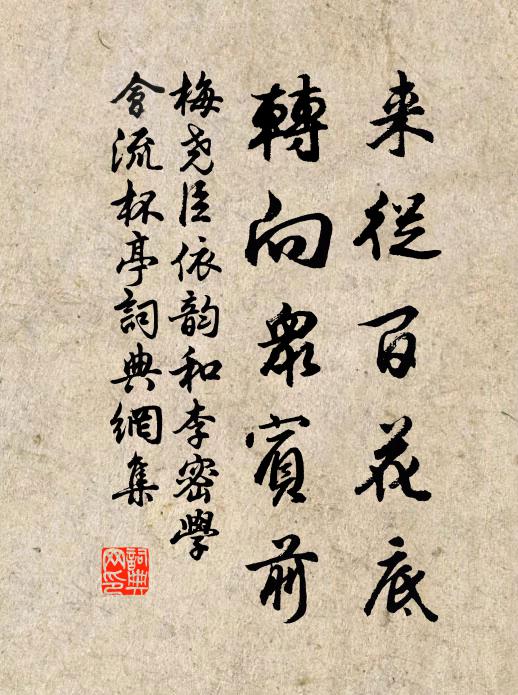 来從百花底
轉向衆賓前
梅尧臣依韵和李密學
會流杯亭詞典網集
詞典网印